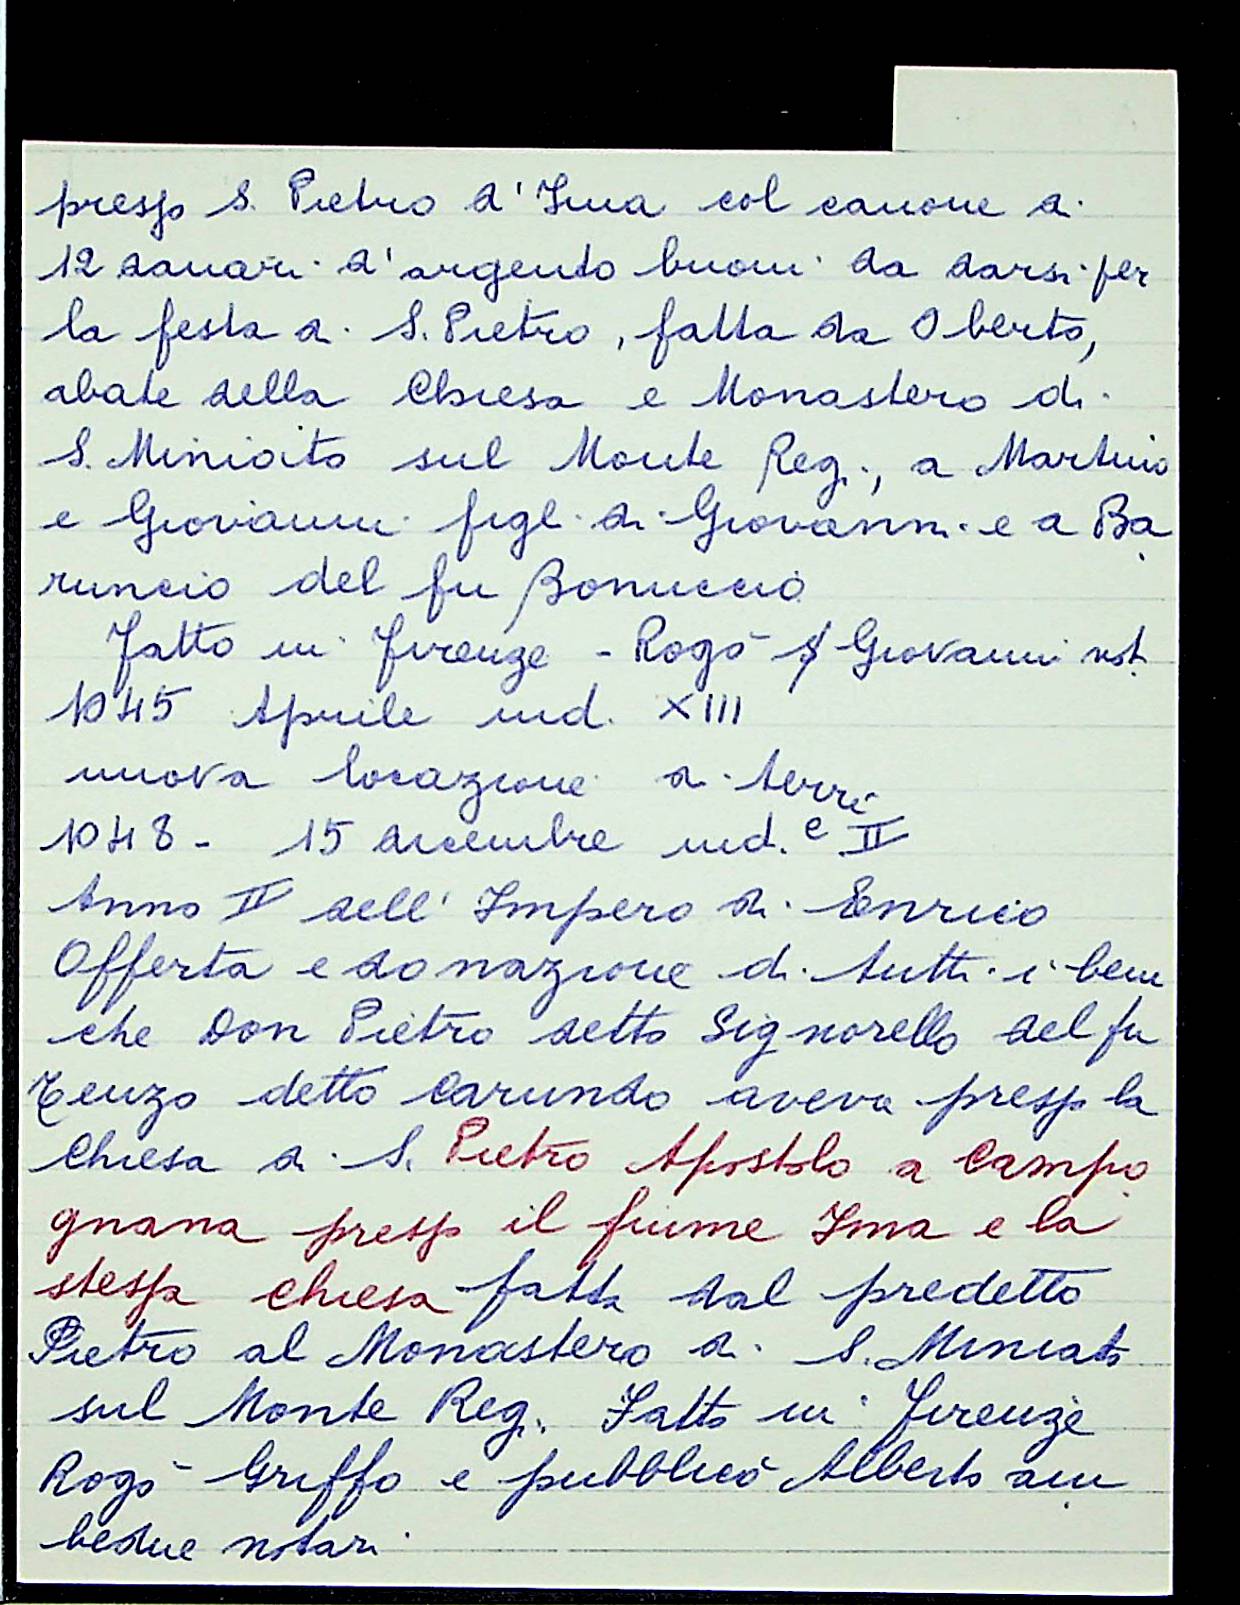 presso S. Pietro d'Ema col canone di
12 danari d'argento buoni da darsi per
la festa di S. Pietro, fatta da Oberto,
abate della Chiesa e Monastero di
S. Miniato sul Monte Reg., a Martino
e Giovanni figl. di Giovanni e a Ba
runcio del fu Bonuccio
Fatto in Firenze - Rogò Giovanni not.
1045 Aprile ind. XIII
nuova locazione di terre
1048 - 15 dicembre ind.e II
Anno II dell'Impero di Enrico
Offerta e donazione di tutti i beni
che Don Pietro detto Signorello del fu
Teuzo detto Carundo aveva presso la
Chiesa di S. Pietro Apostolo a Campo
gnana presso il fiume Ema e la
stessa chiesa fatta dal predetto
Pietro al Monastero di S. Miniato
sul Monte Reg. Fatto in Firenze
Rogò Griffo e pubblicò Alberto am
bedue notari